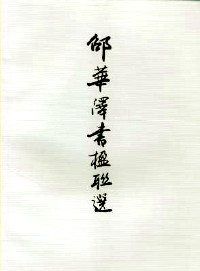 邵華澤書楹聯選